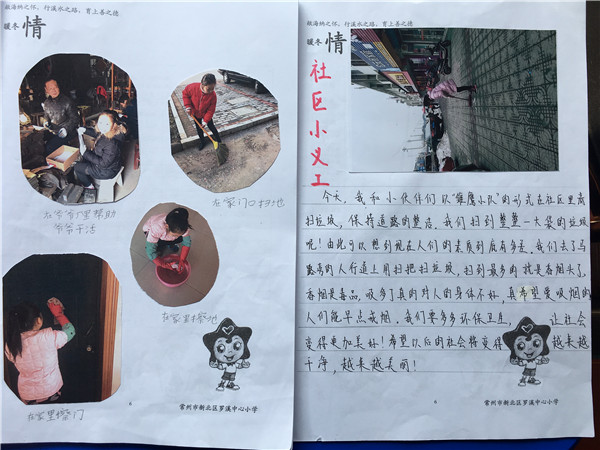 融海纳之怀、行溪水之路、育上善之德
暖冬 情
在爷爷厂里帮助
爷爷干活
在家门口扫地
在家里擦地
在家里擦门
6
常州市新北区罗溪中心小学
融海纳之怀、行溪水之路、育上善之德
暖冬 情
社区小义工
今天，我和小伙伴们以“雏鹰小队”的形式在社区里面
扫垃圾，保持道路的整洁，我们扫到整整一大袋的垃圾
呢！由此可以想到现在人们的素质到底有多差。我们去了马
路旁的人行道上用扫把扫垃圾，扫到最多的就是香烟头了，
香烟是毒品，吸多了真的对人的身体不好，真希望爱吸烟的
人们能早点戒烟，我们要多多环保卫生， 让社会
变得更加美好！希望以后的社会将变得 越来越
干净，越来越美丽！
6
常州市新北区罗溪中心小学